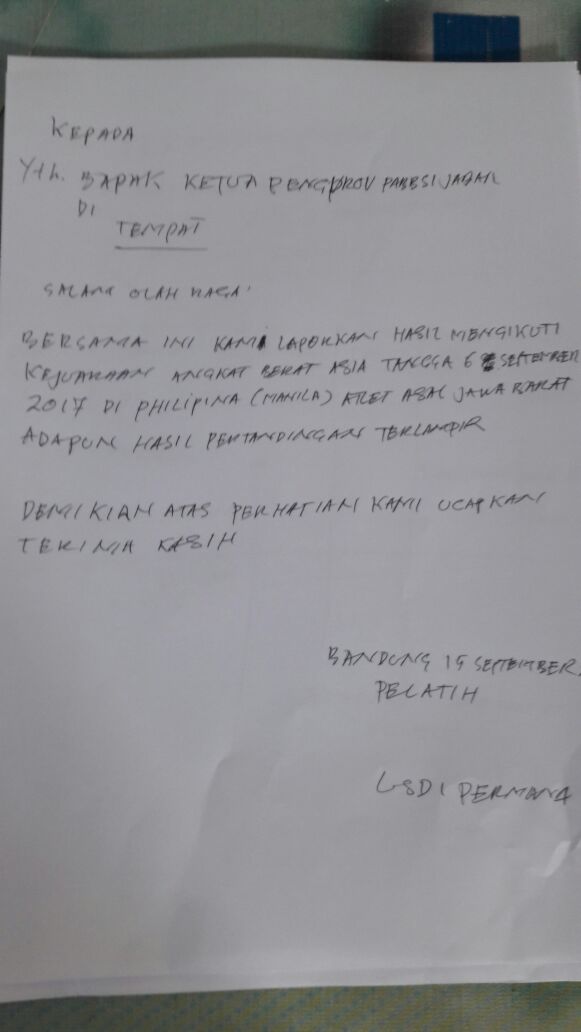 KEPADA
Yth. BAPAK KETUA PENGPROV PABBSI JABAR
DI
TEMPAT
SALAM OLAH RAGA
BERSAMA INI KAMI LAPORKAN HASIL MENGIKUTI
KEJUARAAN ANGKAT BERAT ASIA TANGGA 6 SEPTEMBER
2017 DI PHILIPINA (MANILA) ATLET ASAL JAWA BARAT
ADAPUN HASIL PERTANDINGAN TERLAMPIR
DEMIKIAN ATAS PERHATIAN KAMI UCAPKAN
TERIMA KASIH
BANDUNG 15 SEPTEMBER
PELATIH
PERMANA